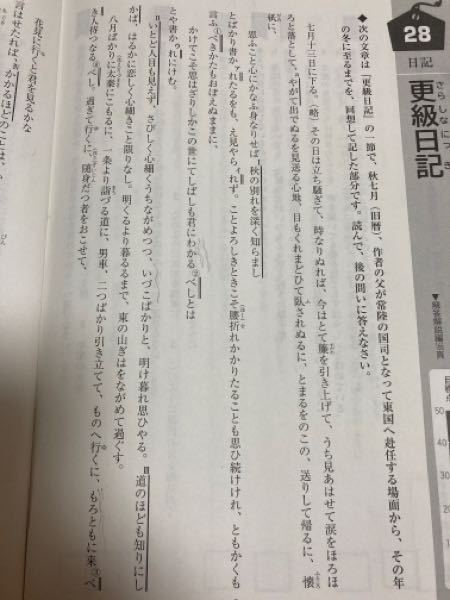 28
日記
更級日記
さらしなにっき
▼解答解説編
◆次の文章は『更級日記』の一節で、秋七月（旧暦）、作者の父が常陸の国司となって東国へ赴任する場面から、その年
の冬に至るまでを、回想して記した部分です。読んで、後の問いに答えなさい。
七月十三日に下る。（略）その日は立ち騒ぎて、時なりぬれば、今はとて簾を引き上げて、うち見あはせて涙をほろほ
ろと落として、やがて出でぬるを見送る心地、目もくれまどひて臥されぬるに、とまるをのこの、送りして帰るに、懐
紙に、
思ふこと心にかなふ身なりせば秋の別れを深く知らまし
とばかり書かれたるをも、え見やられず。ことよろしきときこそ腰折れかかりたることも思ひ続けけれ、ともかくも
言ふ①べきかたもおぼえぬままに、
かけてこそ思はざりしかこの世にてしばしも君にわかる②べしとは
とや書かれにけむ。
いとど人目も見えず、さびしく心細くうちながめつつ、いづこばかりと、明け暮れ思ひやる。Ⅱ道のほども知りにし
かば、はるかに恋しく心細きこと限りなし。明くるより暮るるまで、東の山ぎはをながめて過ぐす。
八月ばかりに太秦にこもるに、一条より詣づる道に、男車、二つばかり引き立てて、ものへ行くに、もろともに来③べ
き人待つなる④べし。過ぎて行くに、随身だつ者をおこせて、
花見に行くと君を見るかな
言はせたれば、かかるほどのことは、